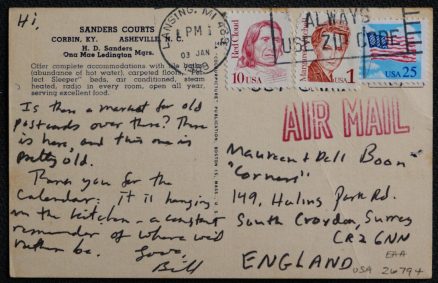 Hi,
SANDERS COURTS
CORBIN, KY. ASHEVILLE, N. C.
H. D. Sanders
Ona Mae Ledington Mgrs.
Offer complete accommodations with tile baths,
(abundance of hot water), carpeted floors,
fect Sleeper" beds, air conditioned, steam
heated, radio in every room, open all year,
serving excellent food.
Is there a market for old
postcards over there? There
is here, and this one is
pretty old.
Thank you for the
Calendar. It is hanging
in the kitchen - a constant
reminder of where we'd
rather be.
Love,
Bill
LANSING, MI
PM
03 JAN
ALWAYS
USE ZIP CODE
Red Cloud
10 USA
USA 1
USA 25
AIR MAIL
Maureen & Dell Boon
"Corners"
149, Huling Park Rd.
South Croydon, Surrey
CR2 6NN
ENGLAND
EAA
USA 26794